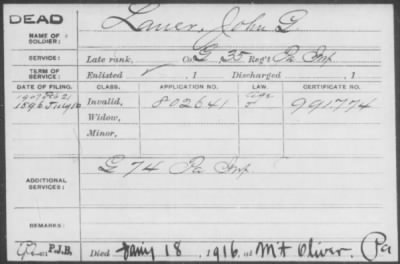 DEAD
NAME OF SOLDIER: Lauer, John G.
SERVICE: Late rank, Co. G, 35 Reg't Pa Inf.
TERM OF SERVICE: Enlisted , 1 Discharged , 1
DATE OF FILING. CLASS. APPLICATION NO. LAW. CERTIFICATE NO.
1907 Feb 21 Age
1896 July Invalid, 802641 991774
Widow,
Minor,
ADDITIONAL SERVICES: G 74 Pa Inf.
REMARKS:
P.J.B. Died Jany 18, 1916, at Mt Oliver. Pa